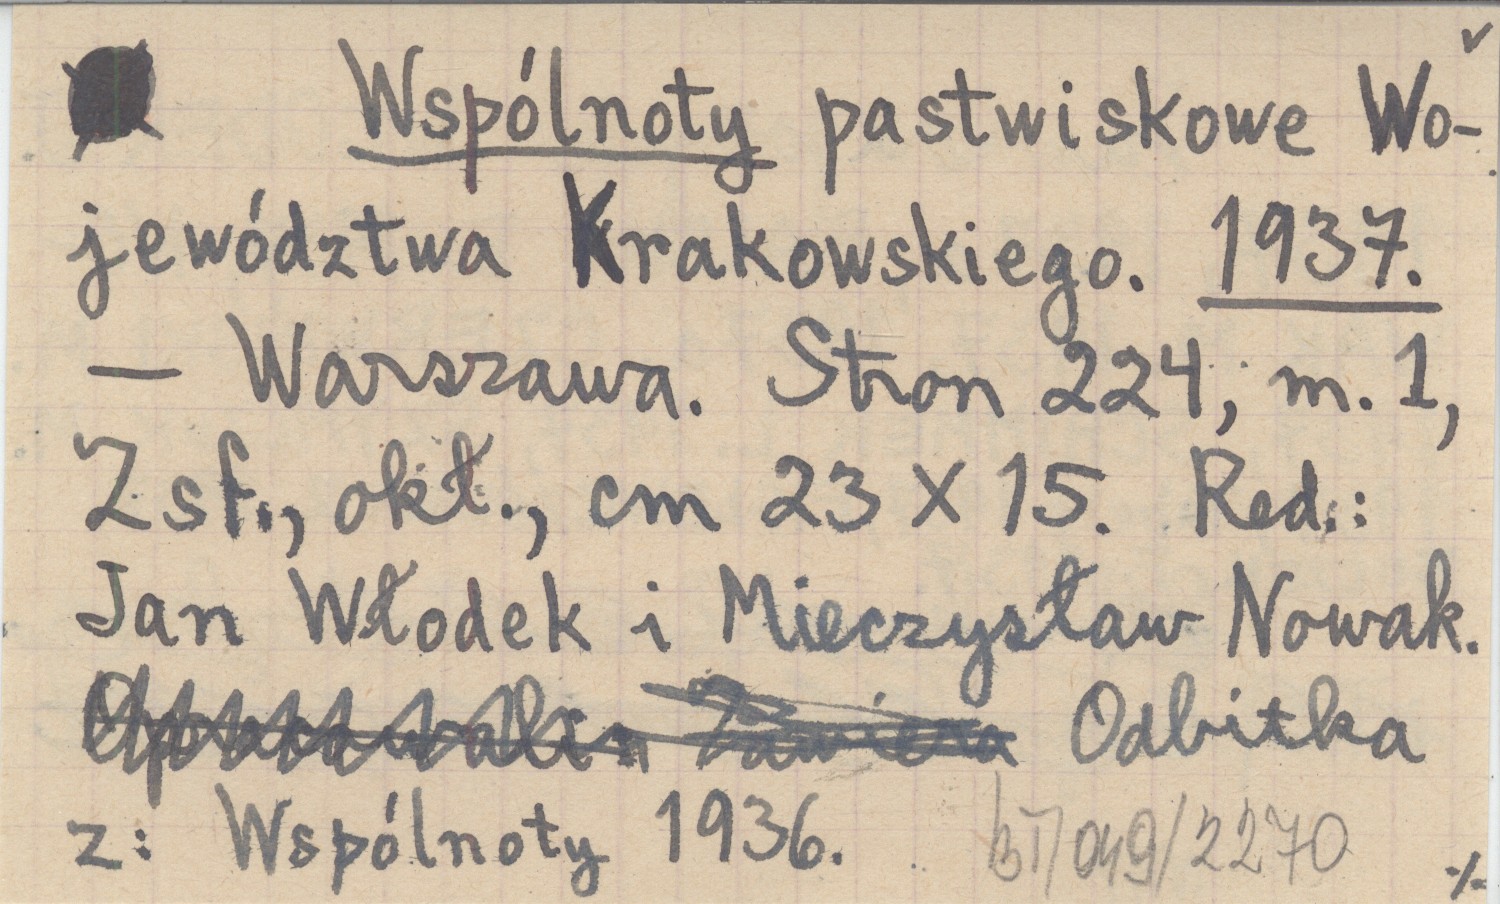 Wspólnoty pastwiskowe Wo-
jewództwa Krakowskiego. 1937.
— Warszawa. Stron 224, m. 1,
Zsf., okł., cm 23 X 15. Red.:
Jan Włodek i Mieczysław Nowak.
Odbitka
z: Wspólnoty 1936. /049/2270